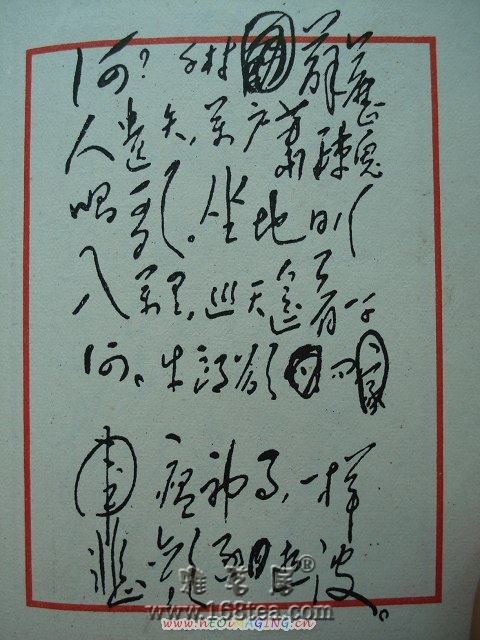 何?千村薜荔
人遗矢,萬户萧疏鬼
唱歌。坐地日行
八萬里,巡天遥看一千
河。牛郎欲问
瘟神事,一样
悲欢逐逝波。
www.168tea.com
www.nEOiMAGING.cn